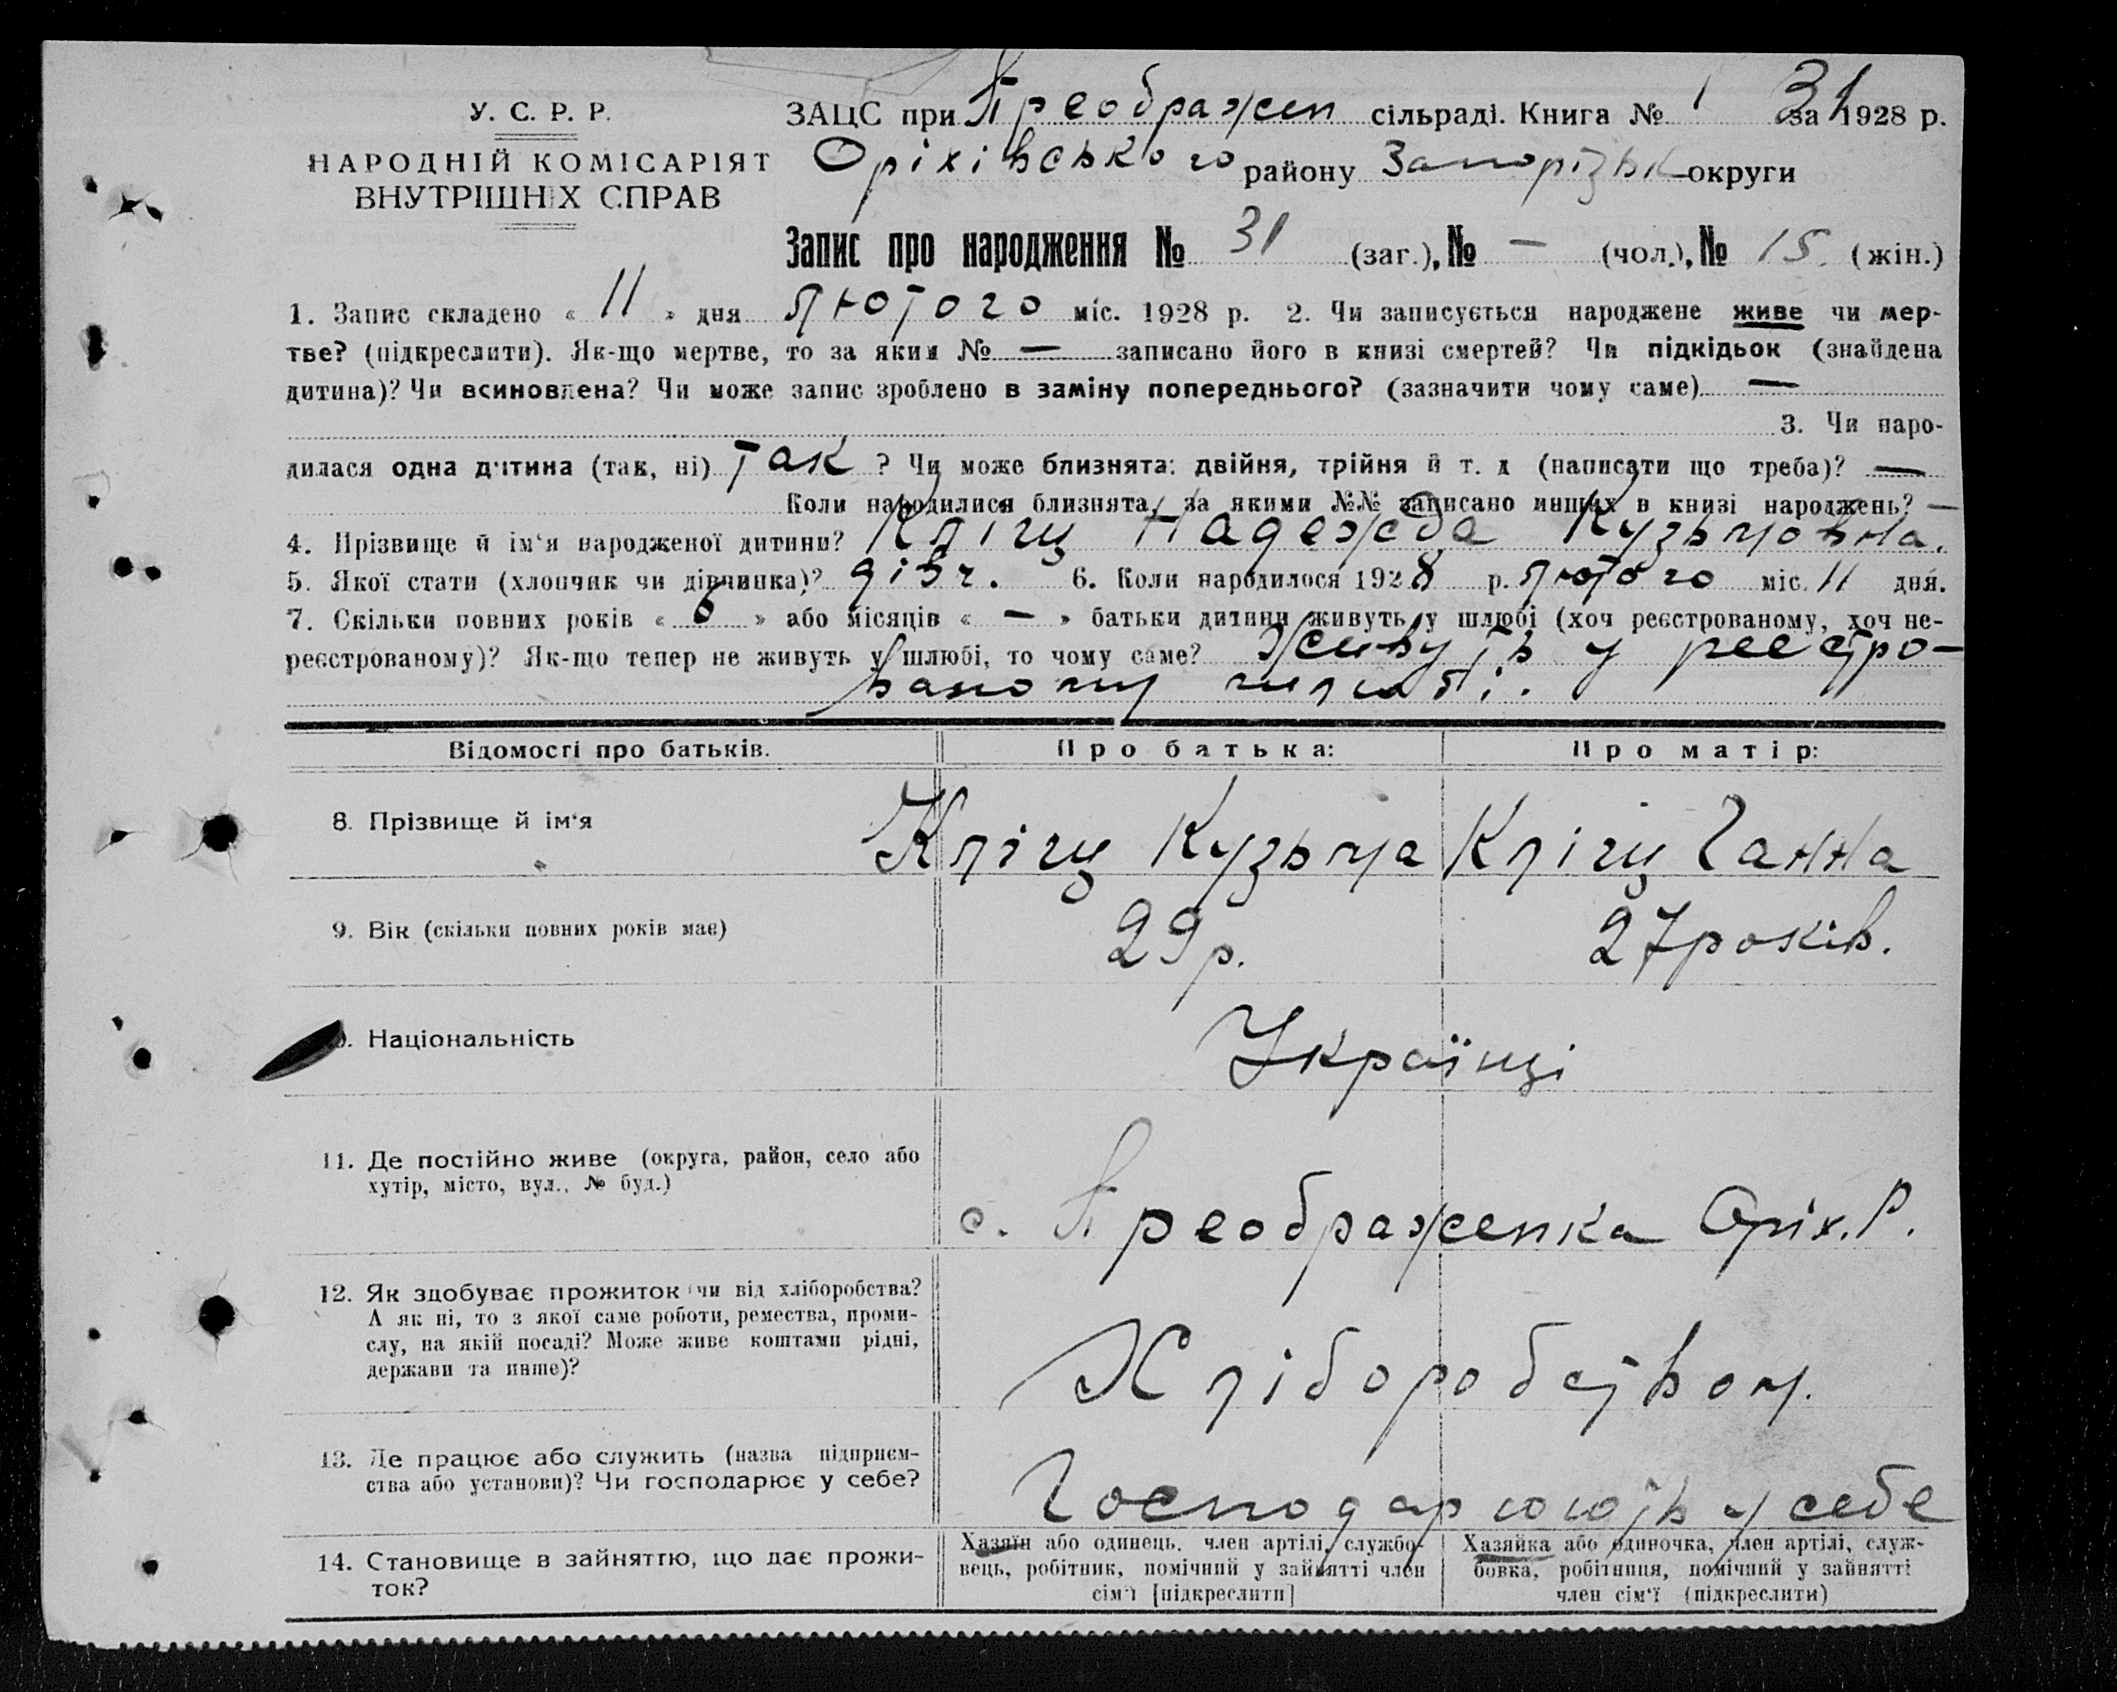 У. С. Р. Р.
НАРОДНІЙ КОМІСАРІЯТ
ВНУТРІШНІХ СПРАВ
31
ЗАЦС при Преображен сільраді. Книга № 1 за 1928 р.
Оріхівського району Запорізьк округи
Запис про народження № 31 (заг.), № — (чол.), № 15. (жін.)
1. Запис складено « 11 » дня лютого міс. 1928 р. 2. Чи записується народжене живе чи мер-
тве? (підкреслити). Як-що мертве, то за яким № — записано його в книзі смертей? Чи підкідьок (знайдена
дитина)? Чи всиновлена? Чи може запис зроблено в заміну попереднього? (зазначити чому саме) —
3. Чи наро-
дилася одна дитина (так, ні) так ? Чи може близнята: двійня, трійня й т. д (написати що треба)? —
Коли народилися близнята, за якими №№ записано инших в книзі народжень? —
4. Прізвище й ім‘я народженої дитини? Клігц Надежда Кузьмовна.
5. Якої стати (хлопчик чи дівчинка)? дівч. 6. Коли народилося 1928 р. лютого міс. 11 дня.
7. Скільки повних років « 6 » або місяців « — » батьки дитини живуть у шлюбі (хоч реєстрованому, хоч не-
реєстрованому)? Як-що тепер не живуть у шлюбі, то чому саме? Живуть у реестро-
ваному шлюбі.
Відомості про батьків. Про батька: Про матір:
8. Прізвище й ім‘я Клігц Кузьма Клігц Ганна
9. Вік (скільки повних років має) 29 р. 27 років.
Національність Українці
11. Де постійно живе (округа, район, село або
хутір, місто, вул., № буд.) с. Преображенка Оріх. Р.
12. Як здобуває прожиток чи від хліборобства?
А як ні, то з якої саме роботи, ремества, проми-
слу, на якій посаді? Може живе коштами рідні,
держави та инше)? Хліборобством.
13. Де працює або служить (назва підприєм-
ства або установи)? Чи господарює у себе? Господарюють у себе
14. Становище в зайняттю, що дає прожи-
ток?
Хазяїн або одинець, член артілі, службо-
вець, робітник, помічний у зайнятті член
сім‘ї [підкреслити]
Хазяйка або одиночка, член артілі, служ-
бовка, робітниця, помічний у зайнятті
член сім‘ї (підкреслити)